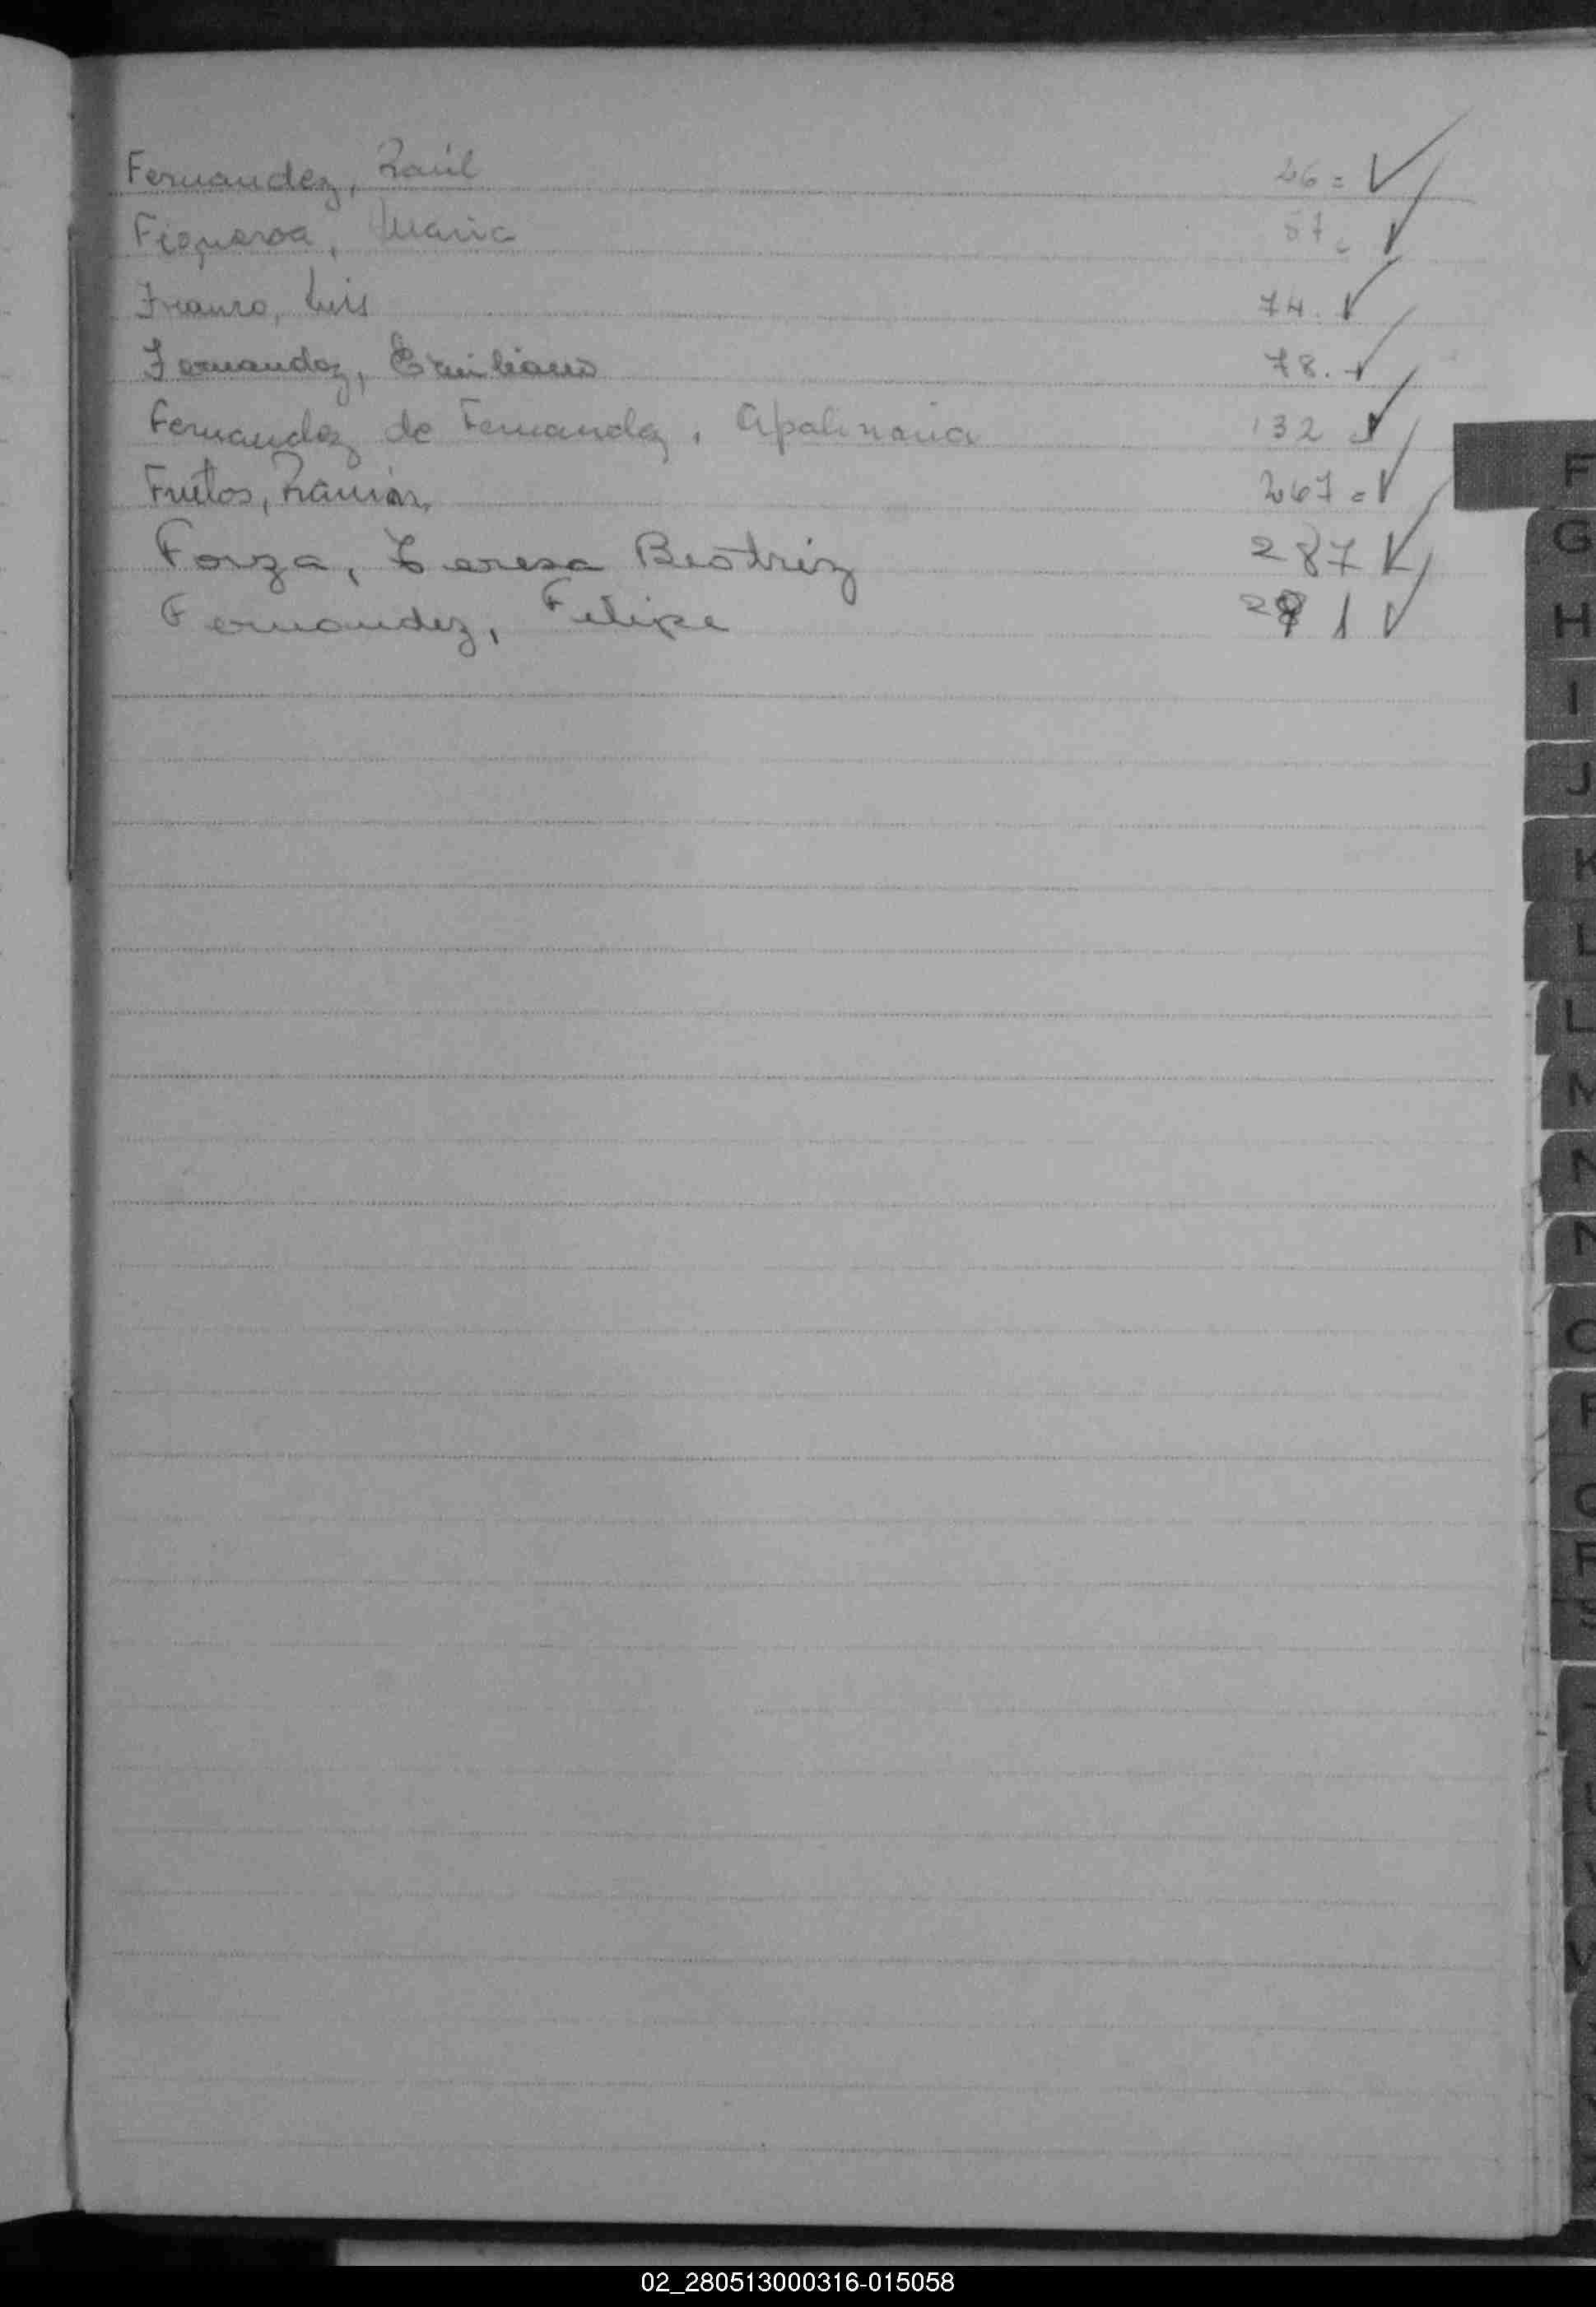 Fernandez, Raúl 26 = ✓
Figueroa, Maria 57 ✓
Franco, Luis 74. ✓
Fernandez, Emiliano 78. ✓
Fernandez de Fernandez, Apalinaria 132 ✓
Frutos, Ramón 267 = ✓
Forza, Teresa Beatriz 287 ✓
Fernandez, Felipe ✓
F
G
H
I
J
K
L
L
M
N
N
O
02_280513000316-015058